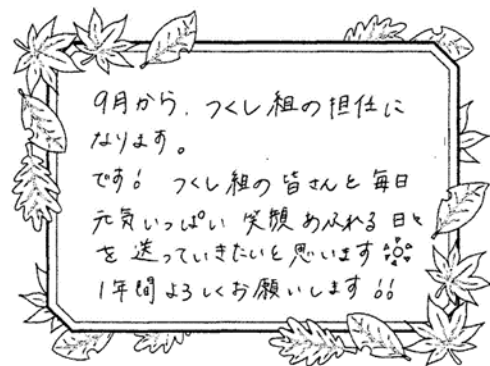 9月から、つくし組の担任に
なります。
です! つくし組の皆さんと毎日
元気いっぱい 笑顔あふれる日々
を送っていきたいと思います
1年間よろしくお願いします!!